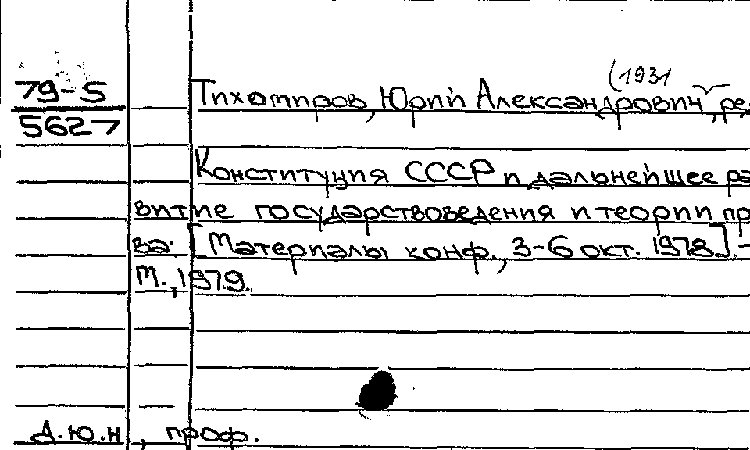 (1931
79-5
Тихомиров, Юрий Александрович, ре
5627
Конституция СССР и дальнейшее ра
витие государствоведения и теории пр
ва. [Материалы конф., 3-6 окт. 1978]. -
М., 1979.
д.ю.н., проф.